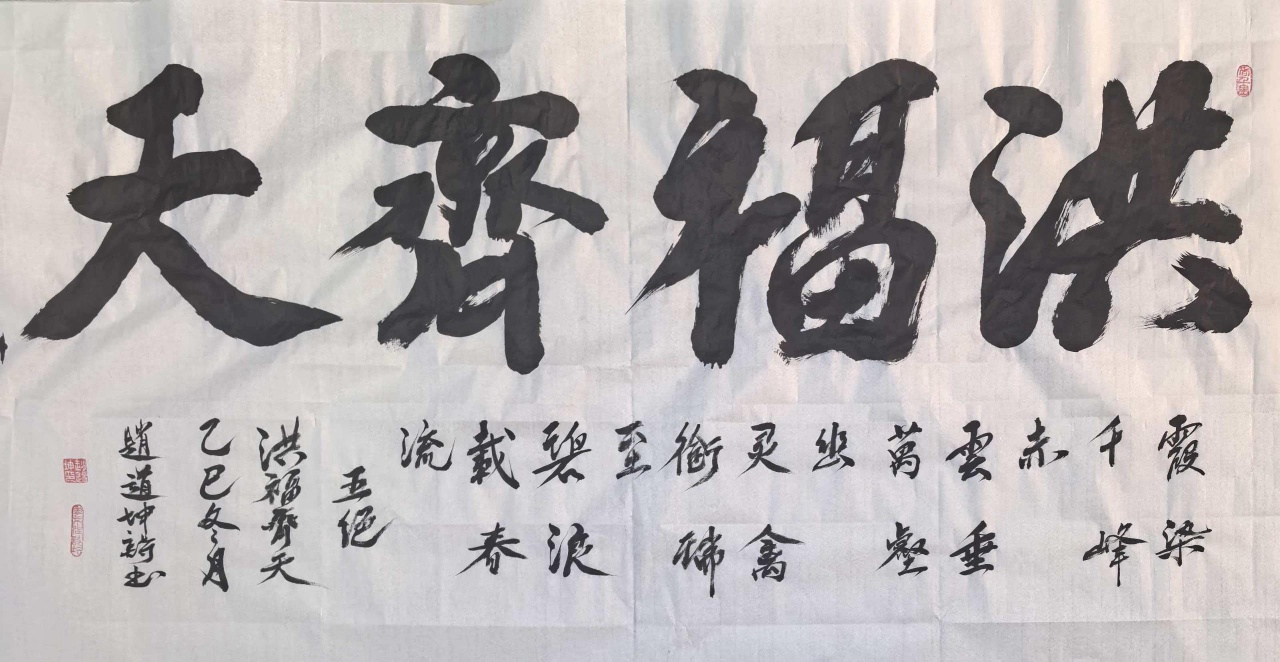 洪福齊天
霞染
千峰
赤
雲垂
萬壑
幽
灵禽
銜瑞
至
碧浪
載春
流
五绝
洪福齊天
乙巳冬月
趙道坤詩书